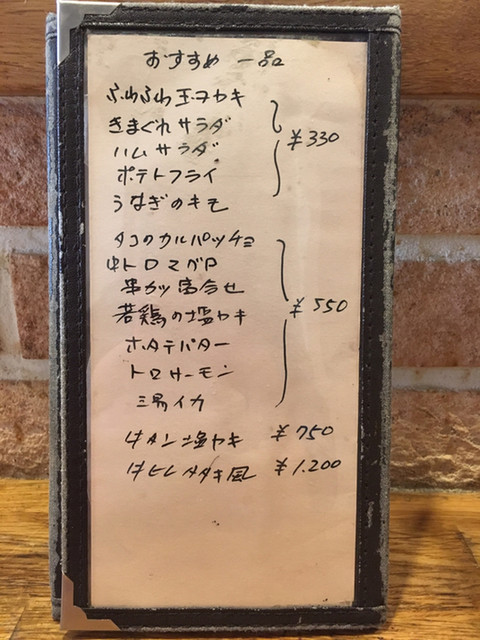 おすすめ 一品
ふわふわ玉子ヤキ
きまぐれサラダ
ハムサラダ
ポテトフライ
うなぎのキモ
¥330
タコのカルパッチョ
中トロマグロ
串カツ盛合せ
若鶏の塩ヤキ
ホタテバター
トロサーモン
イカ
¥550
牛タン塩ヤキ ¥750
牛ヒレタタキ風 ¥1.200